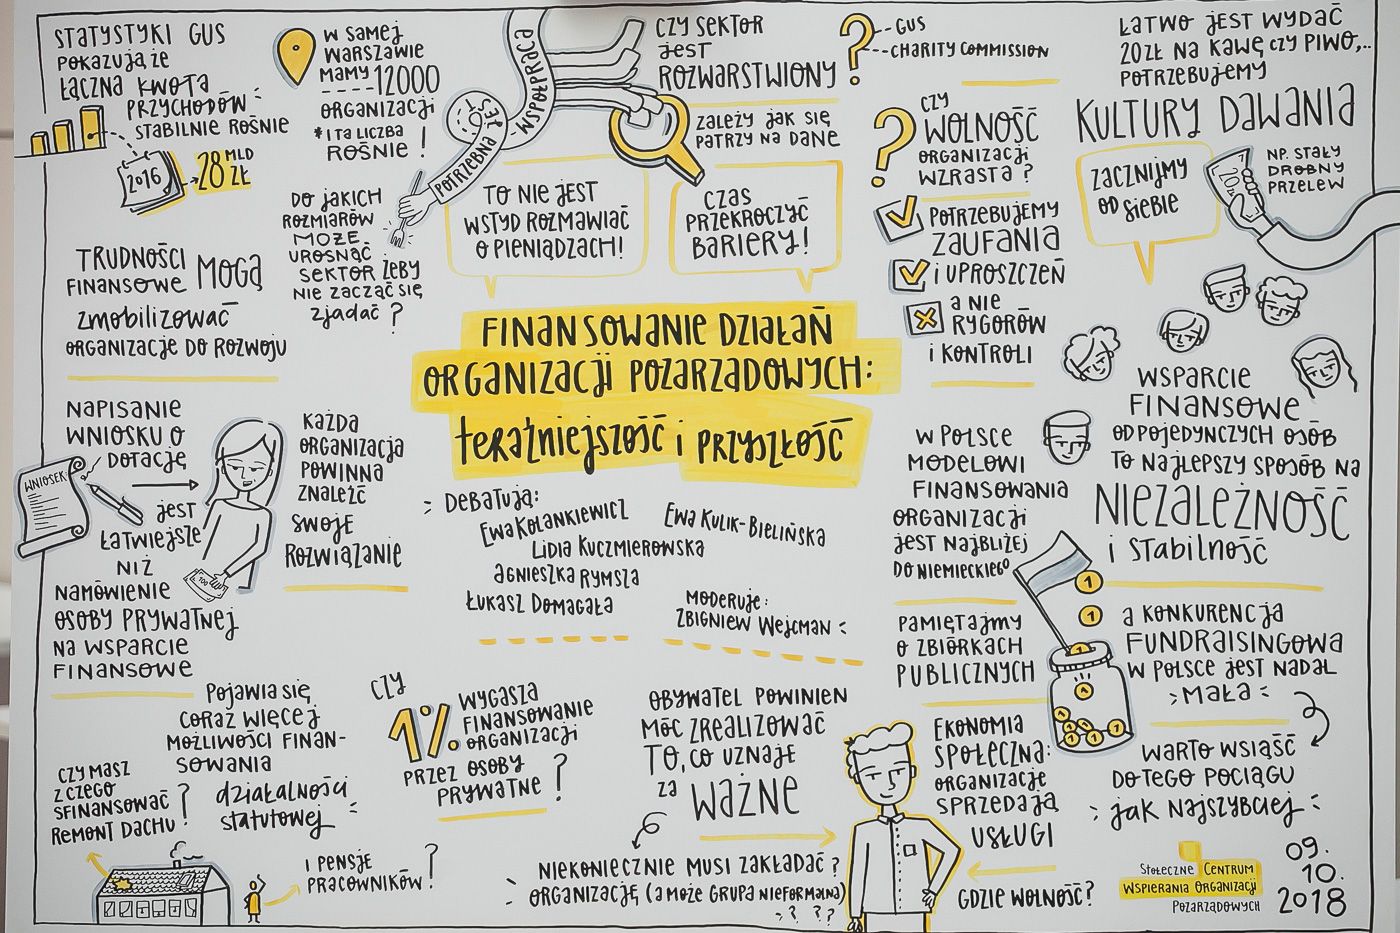 STATYSTYKI GUS
POKAZUJĄ ŻE
ŁĄCZNA KWOTA
PRZYCHODÓW
STABILNIE ROŚNIE
2016
28 MLD
ZŁ
W SAMEJ
WARSZAWIE
MAMY 12000
ORGANIZACJI
* I TA LICZBA
ROŚNIE!
POTRZEBNA SIEĆ
WSPÓŁPRACY
CZY SEKTOR
JEST
ROZWARSTWIONY
?
GUS
CHARITY COMMISSION
ZALEŻY JAK SIĘ
PATRZY NA DANE
ŁATWO JEST WYDAĆ
20ZŁ NA KAWĘ CZY PIWO,..
POTRZEBUJEMY
KULTURY DAWANIA
ZACZNIJMY
OD SIEBIE
NP. STAŁY
DROBNY
PRZELEW
20
? CZY
WOLNOŚĆ
ORGANIZACJI
WZRASTA?
POTRZEBUJEMY
ZAUFANIA
I UPROSZCZEŃ
A NIE
RYGORÓW
I KONTROLI
DO JAKICH
ROZMIARÓW
MOŻE
UROSNĄĆ
SEKTOR ŻEBY
NIE ZACZĄĆ SIĘ
ZJADAĆ?
TO NIE JEST
WSTYD ROZMAWIAĆ
O PIENIĄDZACH!
CZAS
PRZEKROCZYĆ
BARIERY!
TRUDNOŚCI
FINANSOWE MOGĄ
ZMOBILIZOWAĆ
ORGANIZACJE DO ROZWOJU
FINANSOWANIE DZIAŁAŃ
ORGANIZACJI POZARZĄDOWYCH:
TERAŹNIEJSZOŚĆ I PRZYSZŁOŚĆ
NAPISANIE
WNIOSKU O
DOTACJĘ
WNIOSEK
JEST
ŁATWIEJSZE
NIŻ
NAMÓWIENIE
OSOBY PRYWATNEJ
NA WSPARCIE
FINANSOWE
100
KAŻDA
ORGANIZACJA
POWINNA
ZNALEŹĆ
SWOJE
ROZWIĄZANIE
DEBATUJĄ:
EWA KOLANKIEWICZ
EWA KULIK-BIELIŃSKA
LIDIA KUCZMIEROWSKA
AGNIESZKA RYMSZA
ŁUKASZ DOMAGAŁA
MODERUJE:
ZBIGNIEW WEJCMAN
W POLSCE
MODELOWI
FINANSOWANIA
ORGANIZACJI
JEST NAJBLIŻEJ
DO NIEMIECKIEGO
WSPARCIE
FINANSOWE
OD POJEDYNCZYCH OSÓB
TO NAJLEPSZY SPOSÓB NA
NIEZALEŻNOŚĆ
I STABILNOŚĆ
PAMIĘTAJMY
O ZBIÓRKACH
PUBLICZNYCH
1
1
1
1
1
1
1
1
A KONKURENCJA
FUNDRAISINGOWA
W POLSCE JEST NADAL
MAŁA
WARTO WSIĄŚĆ
DO TEGO POCIĄGU
JAK NAJSZYBCIEJ
POJAWIA SIĘ
CORAZ WIĘCEJ
MOŻLIWOŚCI FINAN-
SOWANIA
DZIAŁALNOŚCI
STATUTOWEJ
CZY MASZ
Z CZEGO
SFINANSOWAĆ
REMONT DACHU?
I PENSJE
PRACOWNIKÓW?
CZY
1%
WYGASZA
FINANSOWANIE
ORGANIZACJI
PRZEZ OSOBY
PRYWATNE?
OBYWATEL POWINIEN
MÓC ZREALIZOWAĆ
TO, CO UZNAJE
ZA WAŻNE
NIEKONIECZNIE MUSI ZAKŁADAĆ?
ORGANIZACJĘ (A MOŻE GRUPA NIEFORMALNA)
? ? ?
EKONOMIA
SPOŁECZNA:
ORGANIZACJE
SPRZEDAJĄ
USŁUGI
GDZIE WOLNOŚĆ?
STOŁECZNE CENTRUM
WSPIERANIA ORGANIZACJI
POZARZĄDOWYCH
09.
10.
2018